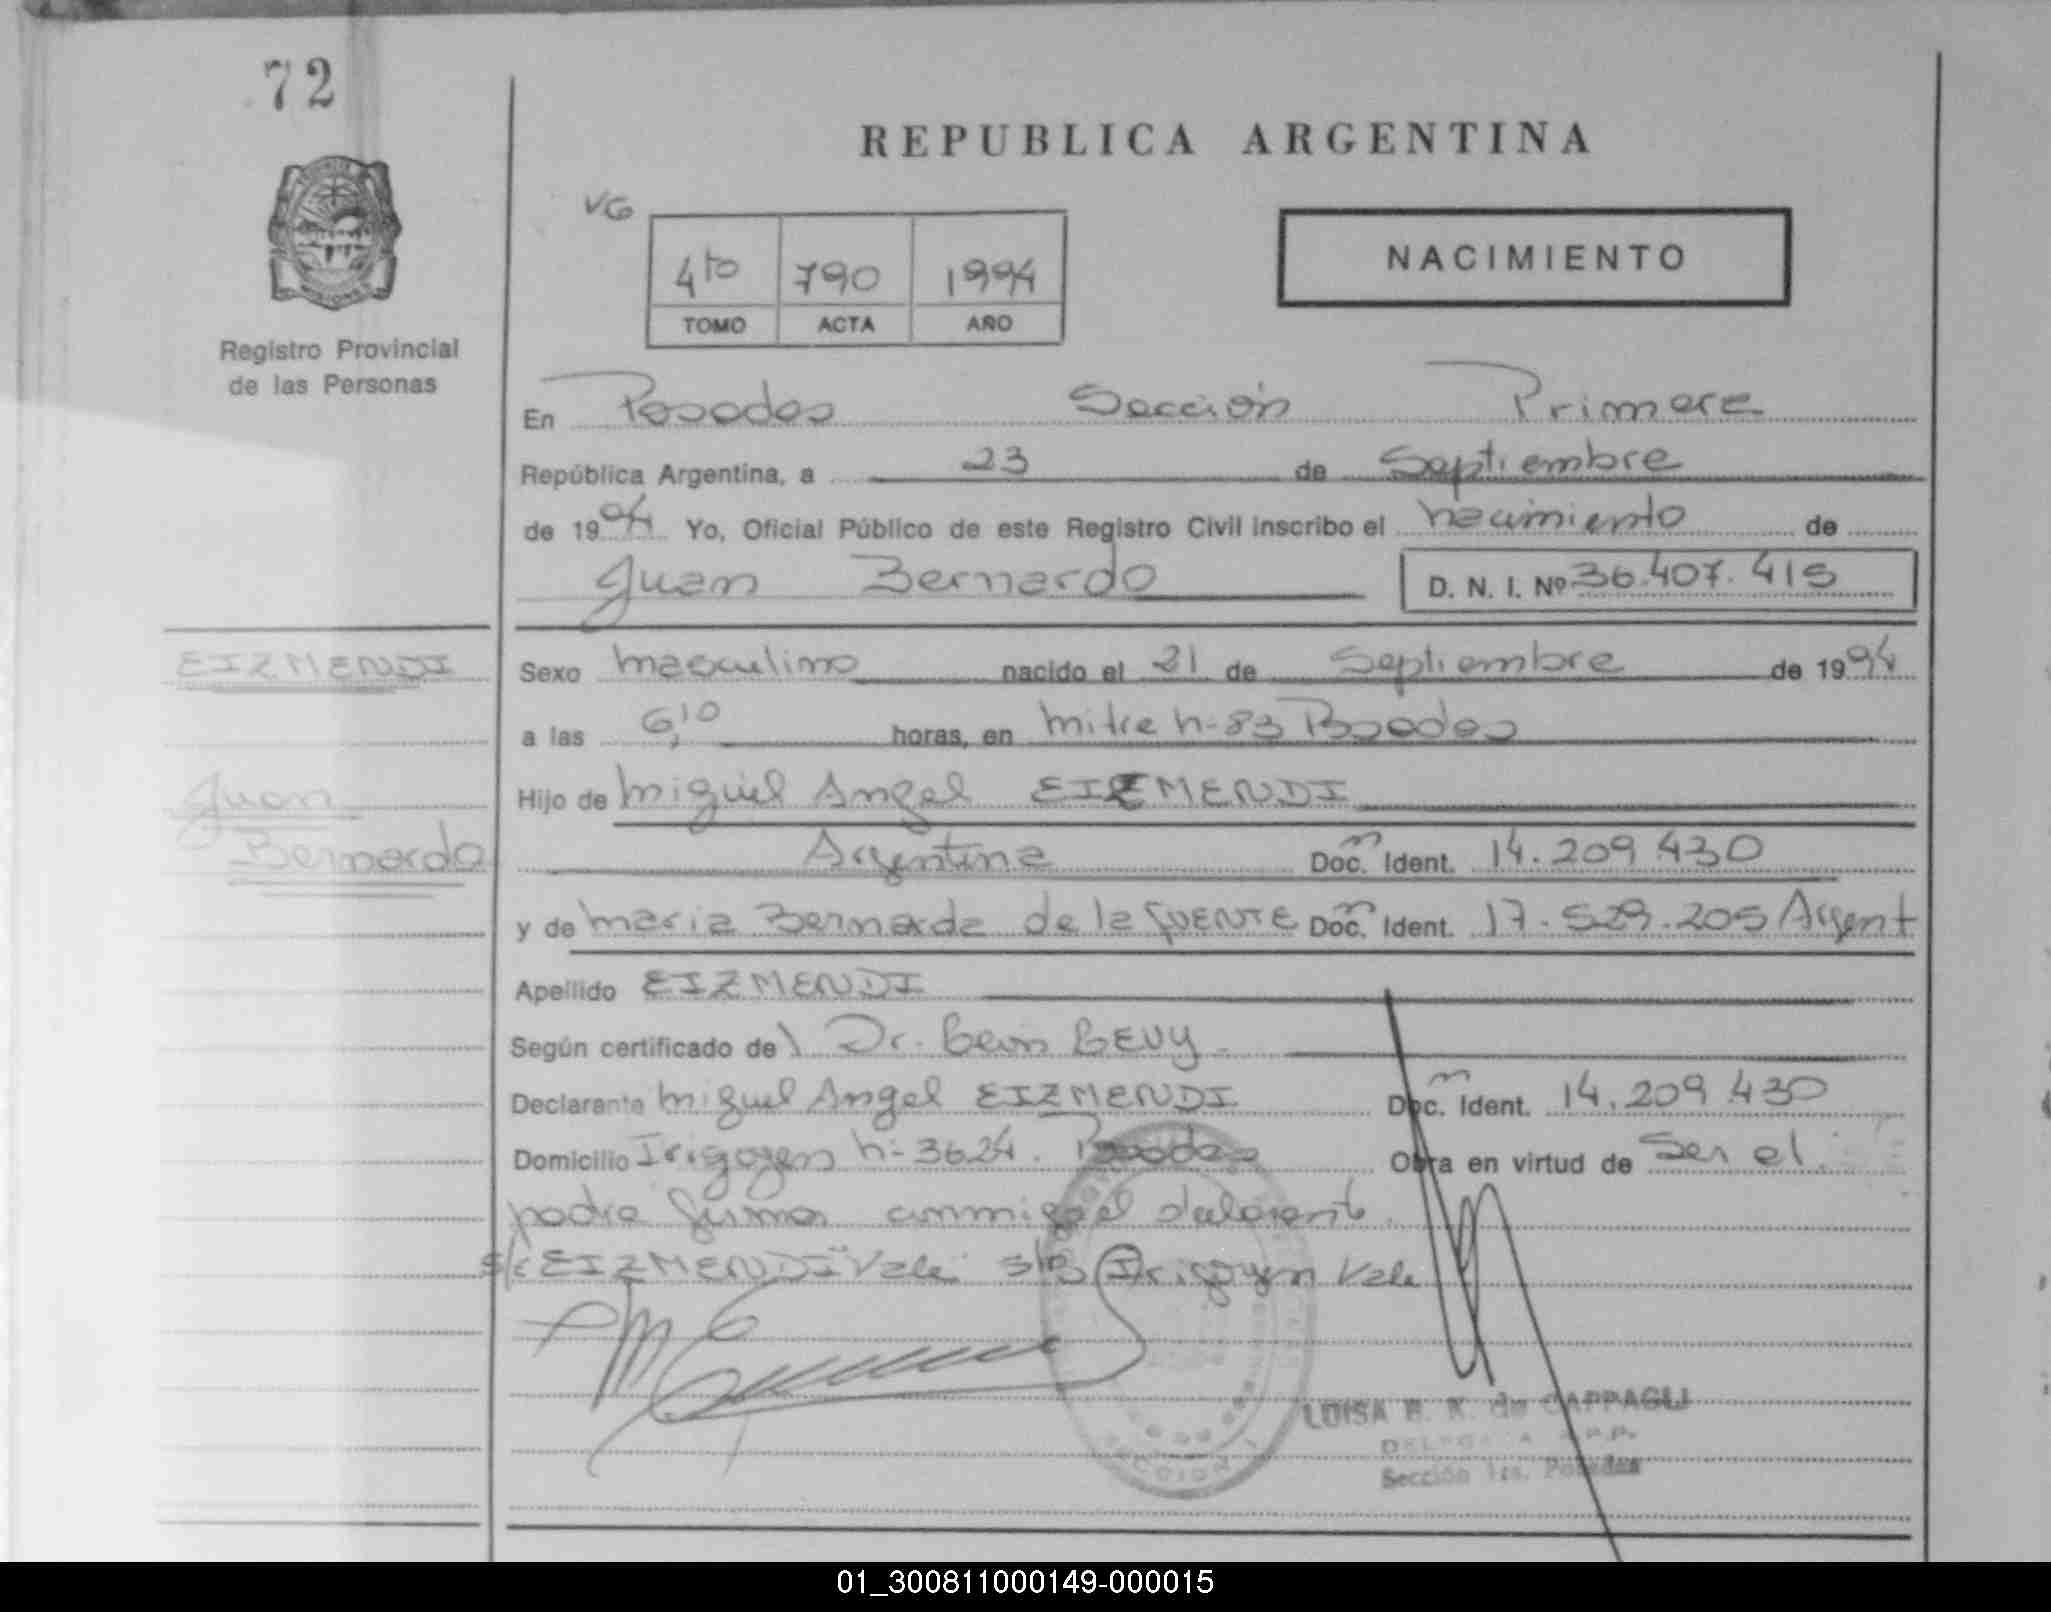 72
REPUBLICA ARGENTINA
VG
4to 790 1994
TOMO ACTA AÑO
NACIMIENTO
MISIONES
Registro Provincial
de las Personas
En Posadas Sección Primera
República Argentina, a 23 de Septiembre
de 1994 Yo, Oficial Público de este Registro Civil inscribo el nacimiento de
Juan Bernardo D. N. I. Nº 36.407.415
EIZMENDI
Juan
Bernardo
Sexo masculino nacido el 21 de Septiembre de 1994
a las 6,10 horas, en mitre n- 83 Posadas
Hijo de Miguel Angel EIZMENDI
Argentina Doc. Ident. 14.209.430
y de maria Bernarda de la fUENTE Doc. Ident. 17.529.205 Argent
Apellido EIZMENDI
Según certificado de Dr. LEVY
Declarante Miguel Angel EIZMENDI Doc. Ident. 14.209.430
Domicilio Irigoyen n- 3624. Posadas Obra en virtud de Ser el
padre firma conmigo el
EIZMENDI" Vale Irigoyen Vale
LUISA de CAPPAGLI
Sección 1ra. Posadas
01_300811000149-000015